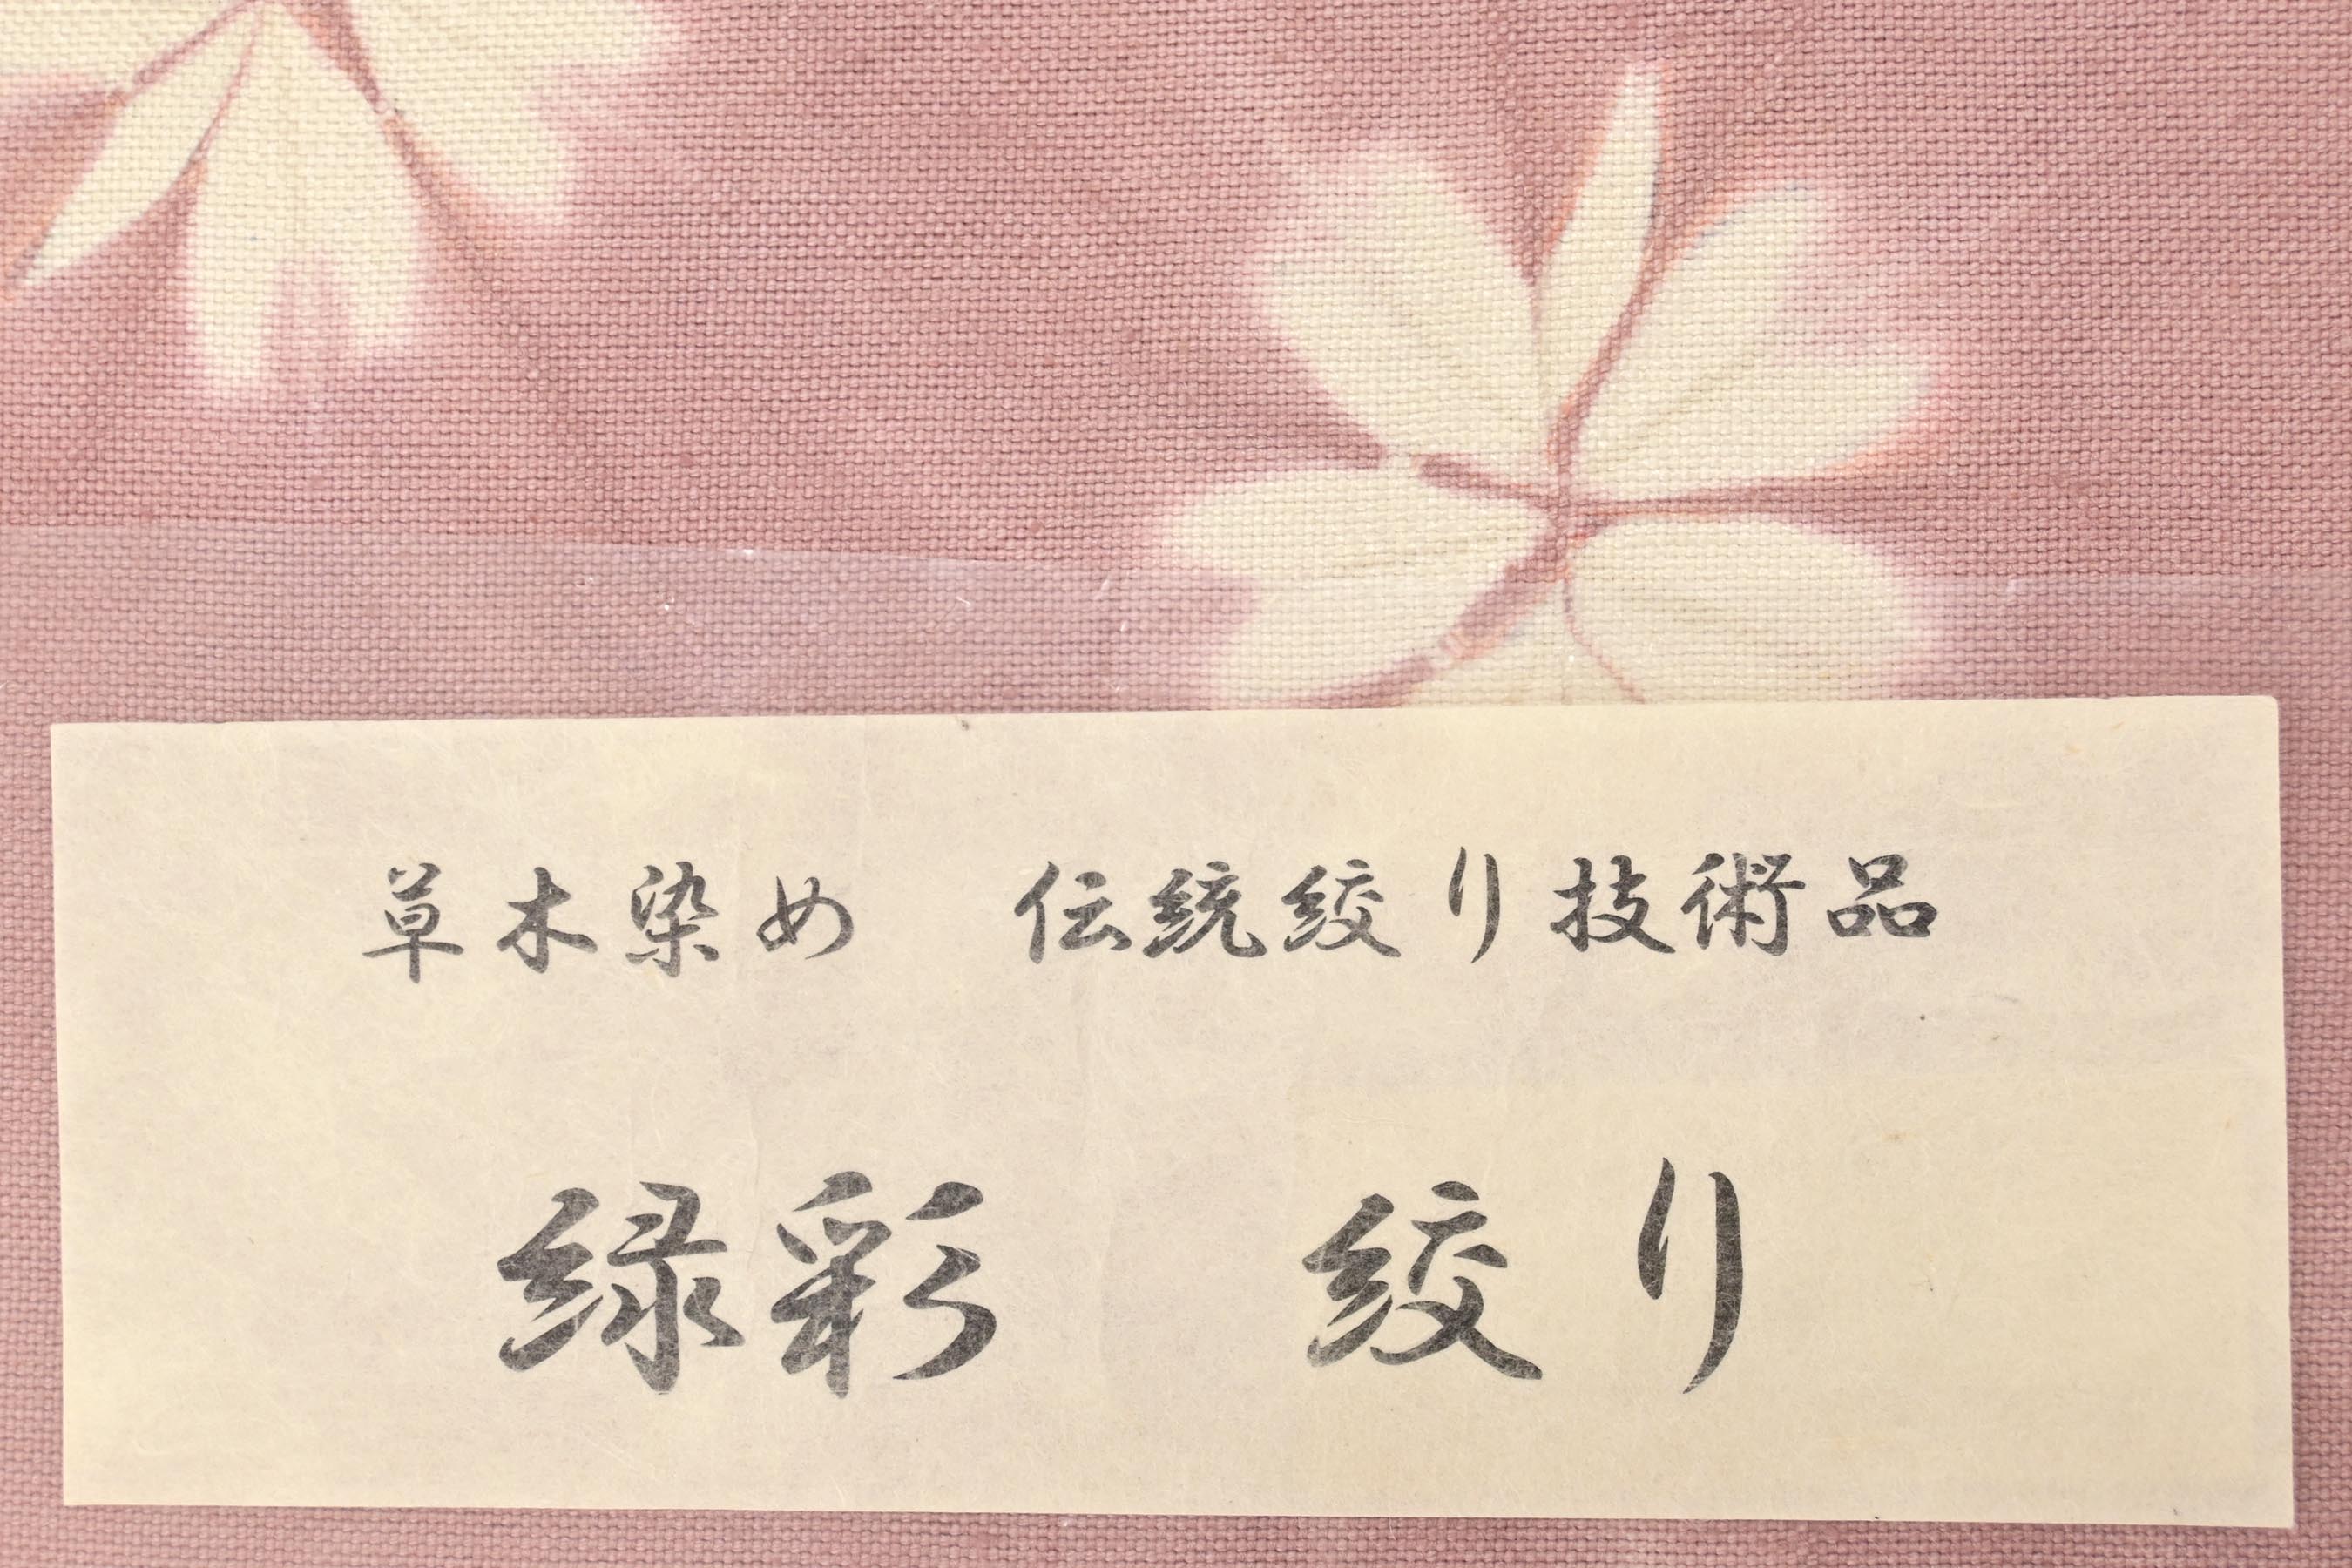 草木染め　伝統絞り技術品
緑彩　絞り